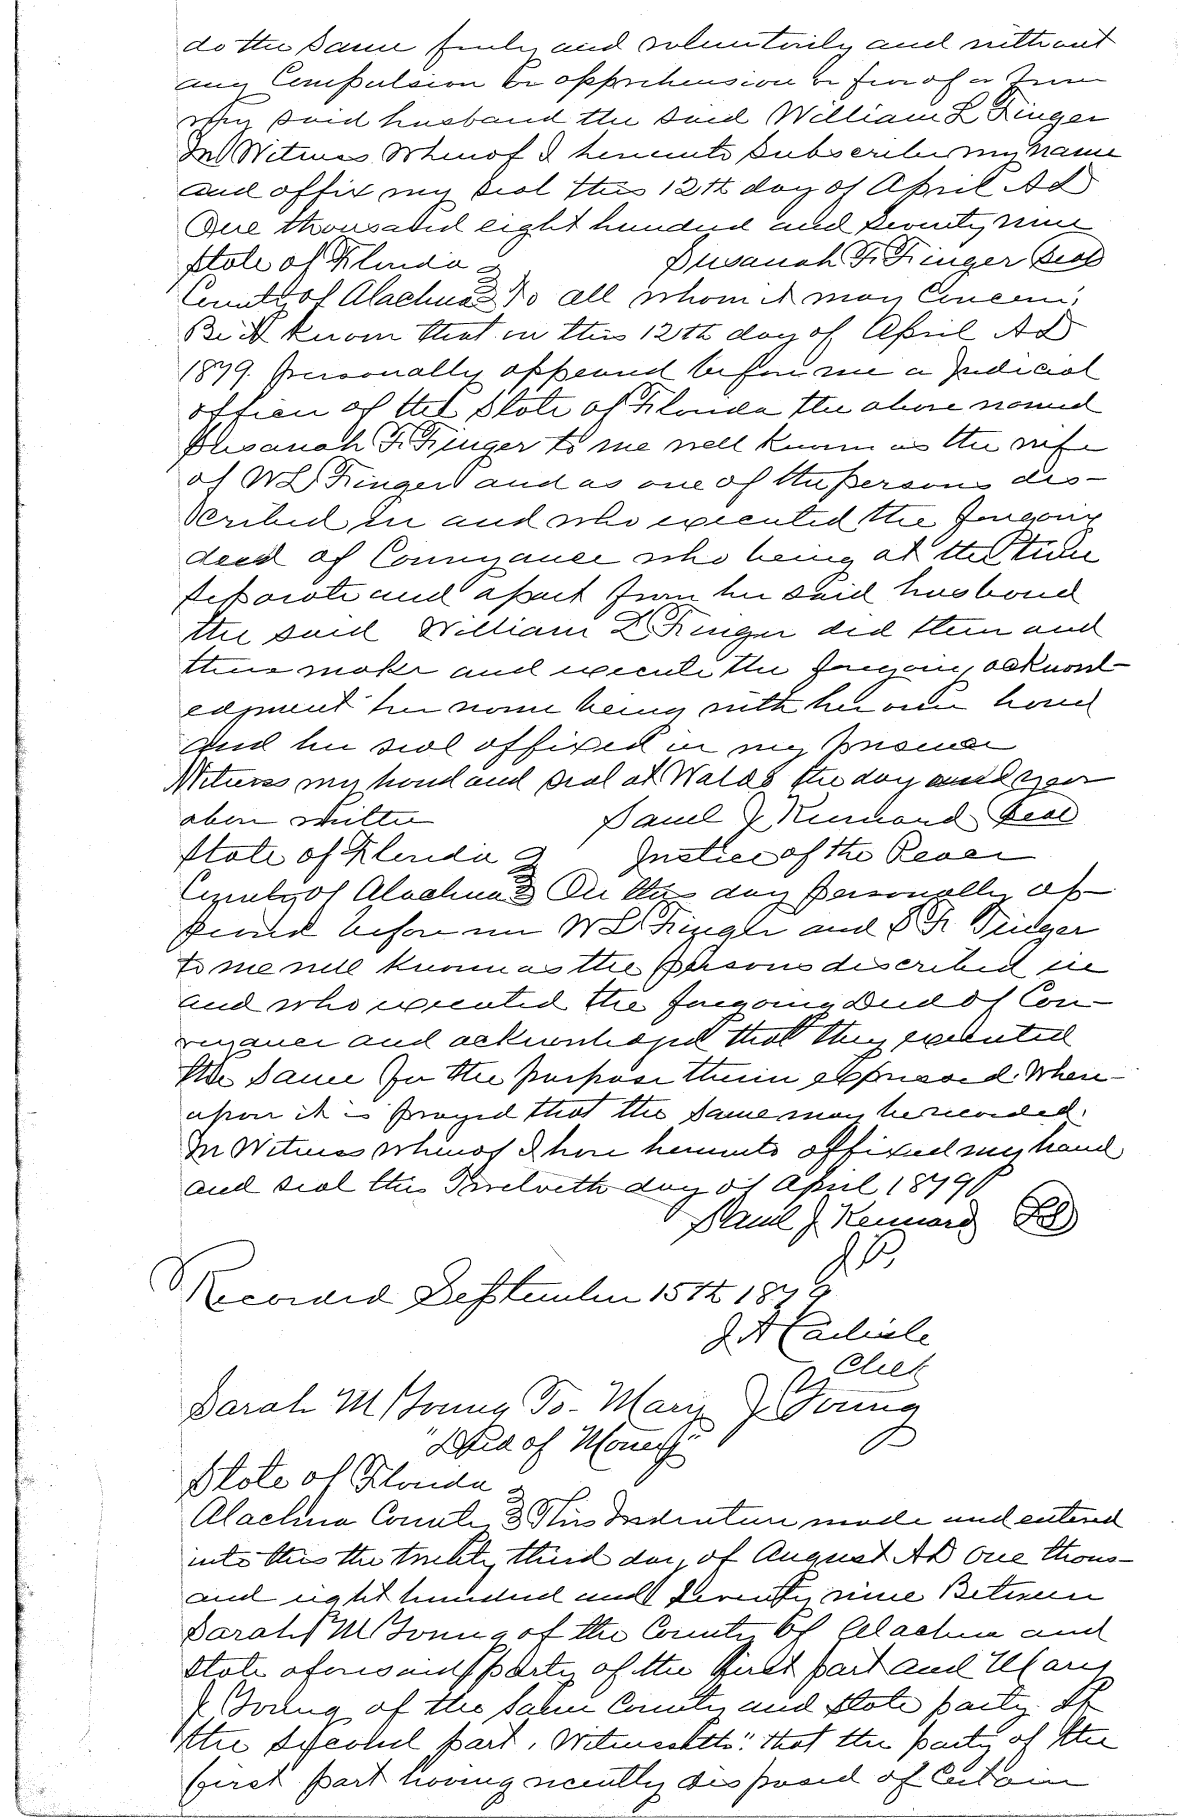 do the same freely and voluntarily and without
any Compulsion or apprehension or fear of or from
my said husband the said William L Finger
In Witness Whereof I hereunto Subscribe my Name
and affix my seal this 12th day of April AD
One thousand eight hundred and Seventy nine
State of Florida Susanah F. Finger Seal
County of Alachua } To all whom it may Concern;
Be it known that on this 12th day of April AD
1879. personally appeared before me a Judicial
officer of the State of Florida the above named
Susanah F. Finger to me well known as the wife
of W L Finger and as one of the persons des-
cribed in and who executed the foregoing
deed of Conveyance who being at the time
separate and apart from her said husband
the said William L Finger did then and
there make and execute the foregoing acknowl-
edgment her name being with her own hand
and her seal affixed in my presence
Witness my hand and seal at Waldo the day and year
above written Saml J Kennard Seal
State of Florida } Justice of the Peace
County of Alachua } On this day personally ap-
peared before me W L Finger and S F. Finger
to me well known as the persons described in
and who executed the foregoing Deed of Con-
veyance and acknowledged that they executed
the Same for the purpose therein expressed. Where-
upon it is prayed that the same may be recorded.
In Witness whereof I have hereunto affixed my hand
and seal this Twelveth day of April 1879
Saml J Kennard
J P.
Recorded September 15th 1879
J A Carlisle
Clerk
Sarah M Young To- Mary J Young
"Deed of Money"
State of Florida }
Alachua County } This Indenture made and entered
into this the twenty third day of August AD One thous-
and eight hundred and Seventy nine Between
Sarah M Young of the County of Alachua and
State aforesaid party of the first part and Mary
J Young of the Same County and State party of
the Second part, Witnesseth": that the party of the
first part having recently disposed of Certain